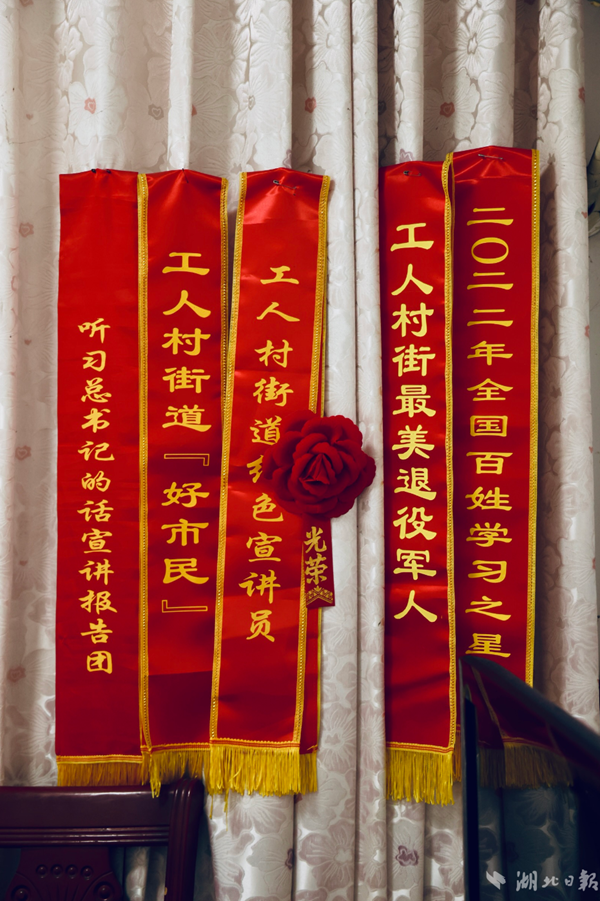 听习总书记的话宣讲报告团
工人村街道『好市民』
工人村街道红色宣讲员
光荣
工人村街最美退役军人
二〇二二年全国百姓学习之星
湖北日报